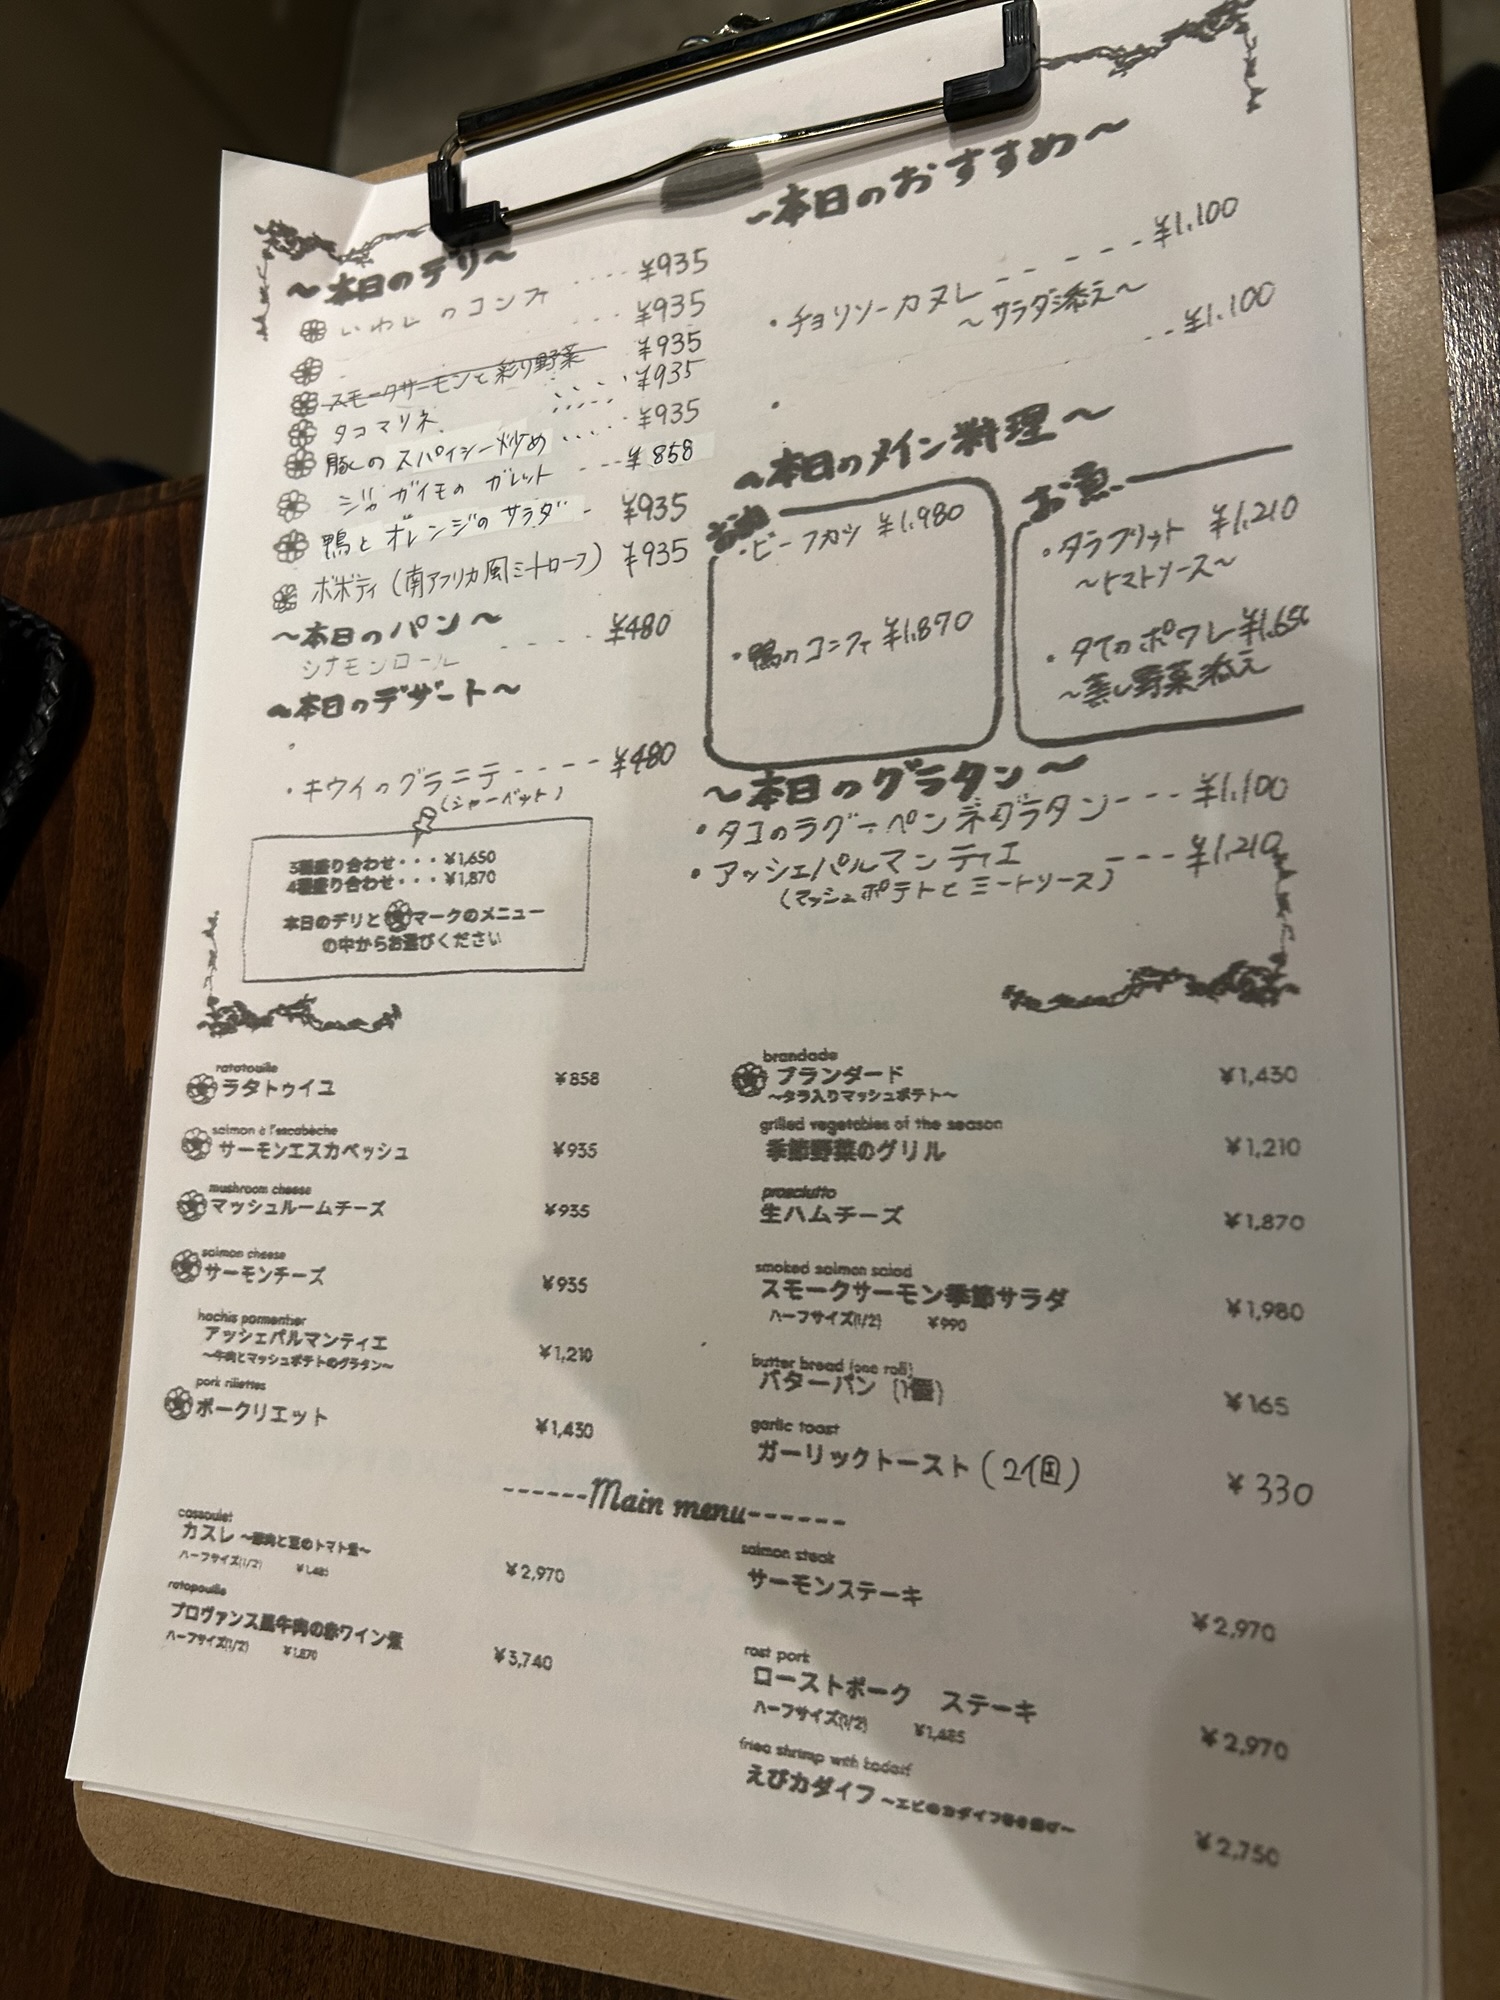 ～本日のデリ～
いわしのコンフィ ････ ¥935
･････ ¥935
スモークサーモンと彩り野菜 ¥935
タコマリネ ･････ ¥935
豚しのスパイシー炒め ･････ ¥935
ジャガイモのガレット --- ¥858
鴨とオレンジのサラダ - ¥935
ボボティ(南アフリカ風ミートローフ) ¥935
～本日のパン～
シナモンロール ---- ¥480
～本日のデザート～
・
・キウイのグラニテ ----- ¥480
(シャーベット)
3種盛り合わせ・・・¥1,650
4種盛り合わせ・・・¥1,870
本日のデリと マークのメニュー
の中からお選びください
～本日のおすすめ～
・チョリソーカヌレ ------ ¥1.100
～サラダ添え～
・ -- ¥1.100
～本日のメイン料理～
・ビーフカツ ¥1.980
・鴨のコンフィ ¥1.870
お魚
・タラフリット ¥1,210
～トマトソース～
・タイのポワレ ¥1.650
～蒸し野菜添え
～本日のグラタン～
・タコのラグーペンネグラタン --- ¥1,100
・アッシェパルマンティエ --- ¥1,210
(マッシュポテトとミートソース)
ratatouille
ラタトゥイユ ¥858
salmon à l'escabèche
サーモンエスカベッシュ ¥935
mushroom cheese
マッシュルームチーズ ¥935
salmon cheese
サーモンチーズ ¥935
hachis parmentier
アッシェパルマンティエ ¥1,210
～牛肉とマッシュポテトのグラタン～
pork rillettes
ポークリエット ¥1,430
brandade
ブランダード ¥1,430
～タラ入りマッシュポテト～
grilled vegetables of the season
季節野菜のグリル ¥1,210
prosciutto
生ハムチーズ ¥1,870
smoked salmon salad
スモークサーモン季節サラダ ¥1,980
ハーフサイズ(1/2) ¥990
butter bread (one roll)
バターパン (1個) ¥165
garlic toast
ガーリックトースト (2個) ¥330
------Main menu------
cassoulet
カスレ ～豚肉と豆のトマト煮～ ¥2,970
ハーフサイズ(1/2) ¥1,485
ratapouille
プロヴァンス風牛肉の赤ワイン煮 ¥3,740
ハーフサイズ(1/2) ¥1,870
salmon steak
サーモンステーキ ¥2,970
rost pork
ローストポーク ステーキ ¥2,970
ハーフサイズ(1/2) ¥1,485
fried shrimp with kadaif
えびカダイフ ～エビのカダイフ巻き揚げ～ ¥2,750